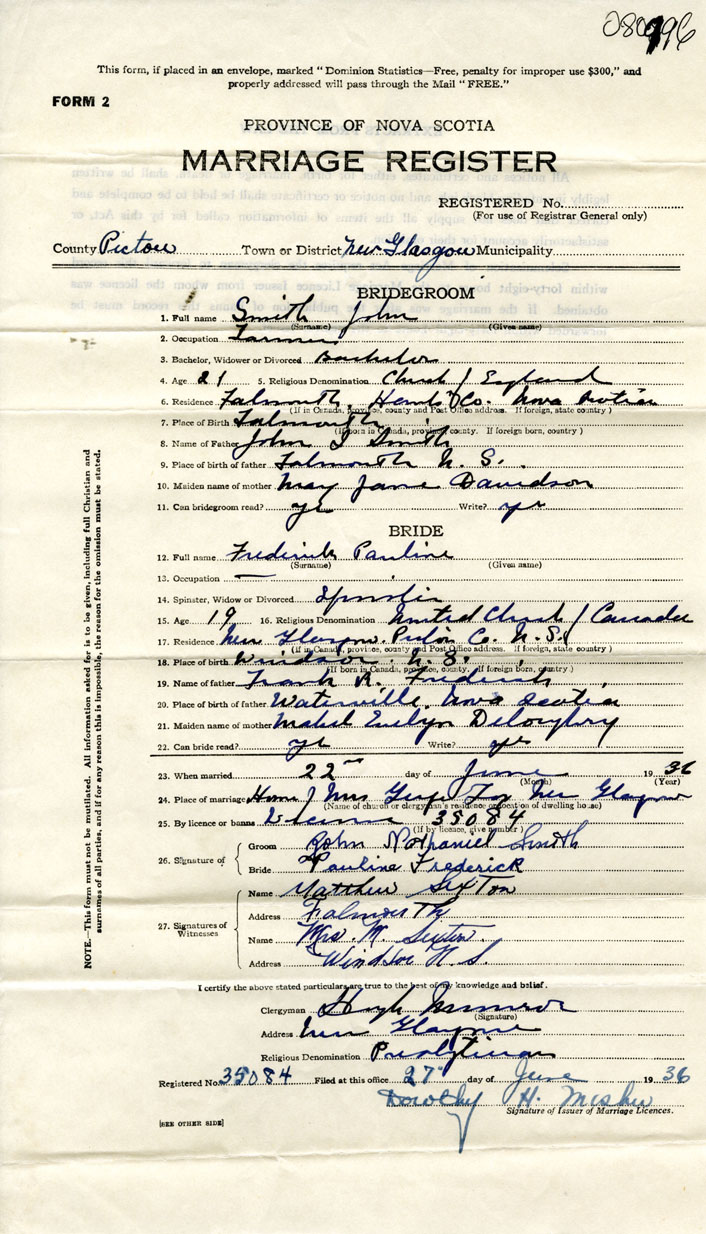 This form, if placed in an envelope, marked "Dominion Statistics—Free, penalty for improper use $300," and
properly addressed will pass through the Mail "FREE."
FORM 2
PROVINCE OF NOVA SCOTIA
MARRIAGE REGISTER
REGISTERED No.
(For use of Registrar General only)
County Pictou Town or District New Glasgow Municipality
BRIDEGROOM
1. Full name Smith John
(Surname) (Given name)
2. Occupation Farmer
3. Bachelor, Widower or Divorced Bachelor
4. Age 21 5. Religious Denomination Church / England
6. Residence Falmouth, Hants Co. Nova Scotia
(If in Canada, province, county and Post Office address. If foreign, state country)
7. Place of Birth Falmouth
(If born in Canada, province, county. If foreign born, country)
8. Name of Father John I Smith
9. Place of birth of father Falmouth N. S.
10. Maiden name of mother Mary Jane Davidson
11. Can bridegroom read? yes Write? yes
BRIDE
12. Full name Frederick Pauline
(Surname) (Given name)
13. Occupation —
14. Spinster, Widow or Divorced Spinster
15. Age 19 16. Religious Denomination United Church / Canada
17. Residence New Glasgow. Pictou Co. N. S.
(If in Canada, province, county and Post Office address. If foreign, state country)
18. Place of birth Windsor. N. S.
(If born in Canada, province, county. If foreign born, country)
19. Name of father Frank R. Frederick
20. Place of birth of father Waterville, Nova Scotia
21. Maiden name of mother Mabel Evelyn Deloughry
22. Can bride read? yes Write? yes
23. When married 22nd day of June 19 36
(Month) (Year)
24. Place of marriage Home / Mrs New Glasgow
(Name of church or clergyman's residence or location of dwelling house)
25. By licence or banns License 35084
(If by licence, give number)
26. Signature of
Groom John Nathaniel Smith
Bride Pauline Frederick
27. Signatures of Witnesses
Name Matthew Sexton
Address Falmouth
Name Mrs. M. Sexton.
Address Windsor N. S.
I certify the above stated particulars are true to the best of my knowledge and belief.
Clergyman Hugh Munroe
(Signature)
Address New Glasgow
Religious Denomination Presbyterian
Registered No. 35084 Filed at this office 27 day of June 19 36
Dorothy H.
Signature of Issuer of Marriage Licences.
[SEE OTHER SIDE]
NOTE.—This form must not be mutilated. All information asked for is to be given, including full Christian and
surnames of all parties, and if for any reason this is impossible, the reason for the omission must be stated.